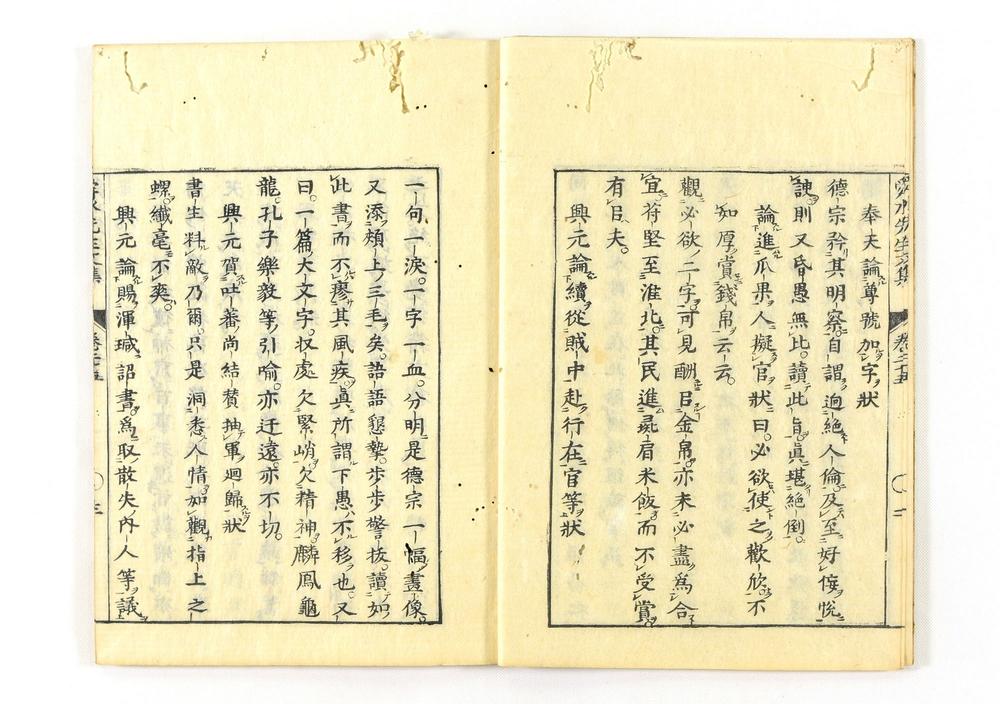 奉天論尊號加字狀
德宗矜其明察自謂逈絕人倫及至好侫悅
諛則又昏愚無比讀此眞堪絕倒
論進瓜果人擬官狀曰必欲使之歡欣不
如厚賞錢帛云云
觀必欲二字可見酬㠯金帛亦未必盡爲合
宜苻堅至淮北其民進彘肩米飯而不受賞
有㠯夫
興元論續從賊中赴行在官等狀
一句一淚一字一血分明是德宗一幅畫像
又添頰上三毛矣語語懇摯步步警拔讀如
此書而不瘳其風疾眞所謂下愚不移也又
曰一篇大文字収處欠緊峭欠精神麟鳳龜
龍孔子樂毅等引喻亦迂遠亦不切
興元賀吐蕃尚結贊抽軍廻歸狀
書生料敵乃爾只是洞悉人情如觀指上之
螺纖毫不爽
興元論賜渾瑊詔書爲取散失內人等議